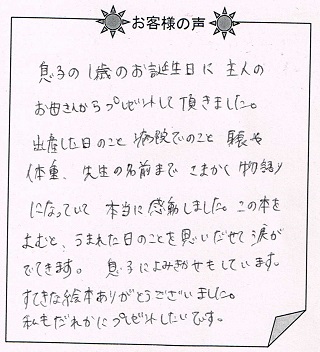 お客様の声
息子の1歳のお誕生日に 主人の
お母さんからプレゼントして頂きました。
出産した日のこと 病院でのこと 身長や
体重、先生の名前まで こまかく 物語り
になっていて 本当に感動しました。この本を
よむと、うまれた日のことを思いだせて涙が
でてきます。 息子によみきかせもしています。
すてきな絵本ありがとうございました。
私もだれかにプレゼントしたいです。